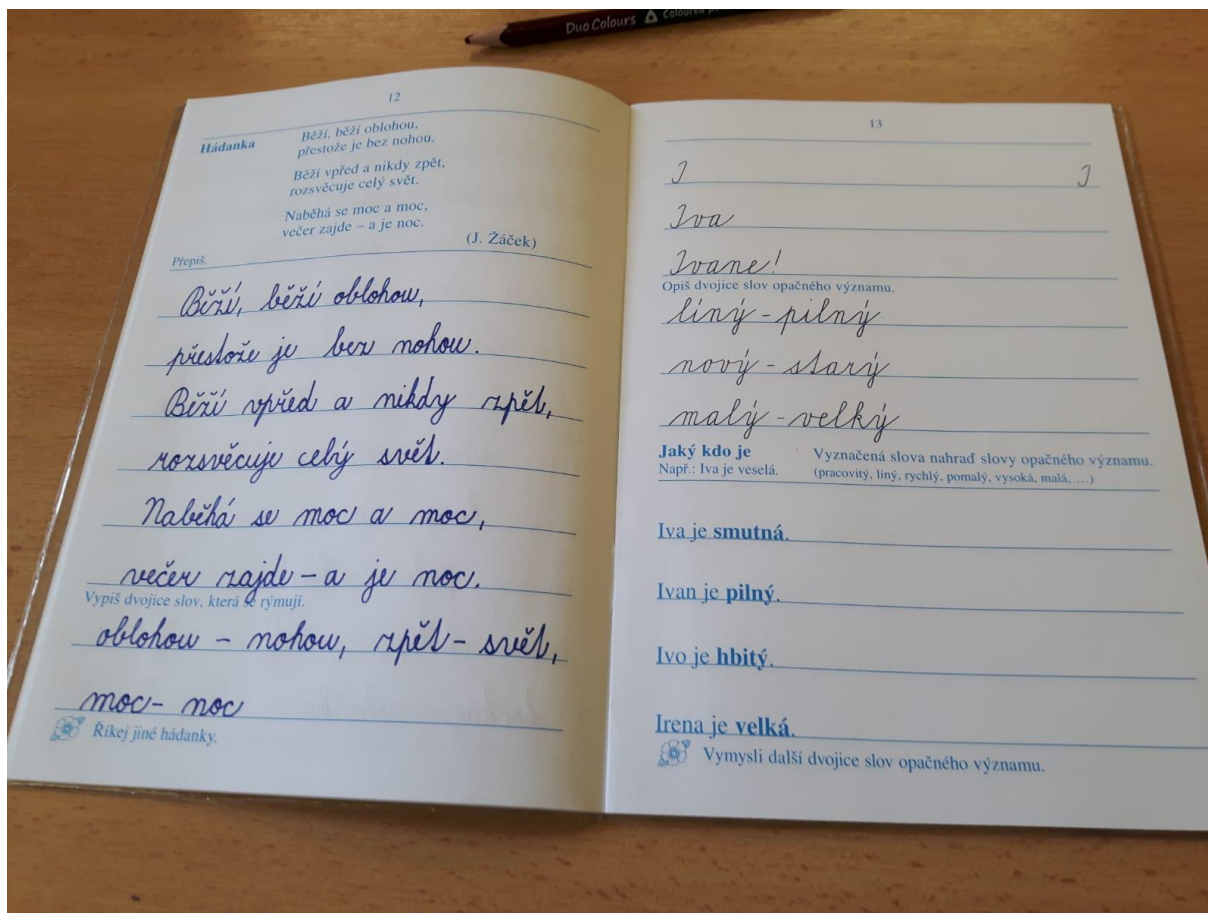 Duo Colours Coloured
12
Hádanka
Běží, běží oblohou,
přestože je bez nohou.
Běží vpřed a nikdy zpět,
rozsvěcuje celý svět.
Naběhá se moc a moc,
večer zajde – a je noc.
(J. Žáček)
Přepiš.
Běží, běží oblohou,
přestože je bez nohou.
Běží vpřed a nikdy zpět,
rozsvěcuje celý svět.
Naběhá se moc a moc,
večer zajde – a je noc.
Vypiš dvojice slov, která se rýmují.
oblohou – nohou, zpět – svět,
moc – noc
Říkej jiné hádanky.
13
I I
Iva
Ivane!
Opiš dvojice slov opačného významu.
líný - pilný
nový - starý
malý - velký
Jaký kdo je Vyznačená slova nahraď slovy opačného významu.
Např.: Iva je veselá. (pracovitý, líný, rychlý, pomalý, vysoká, malá, ...)
Iva je smutná.
Ivan je pilný.
Ivo je hbitý.
Irena je velká.
Vymysli další dvojice slov opačného významu.